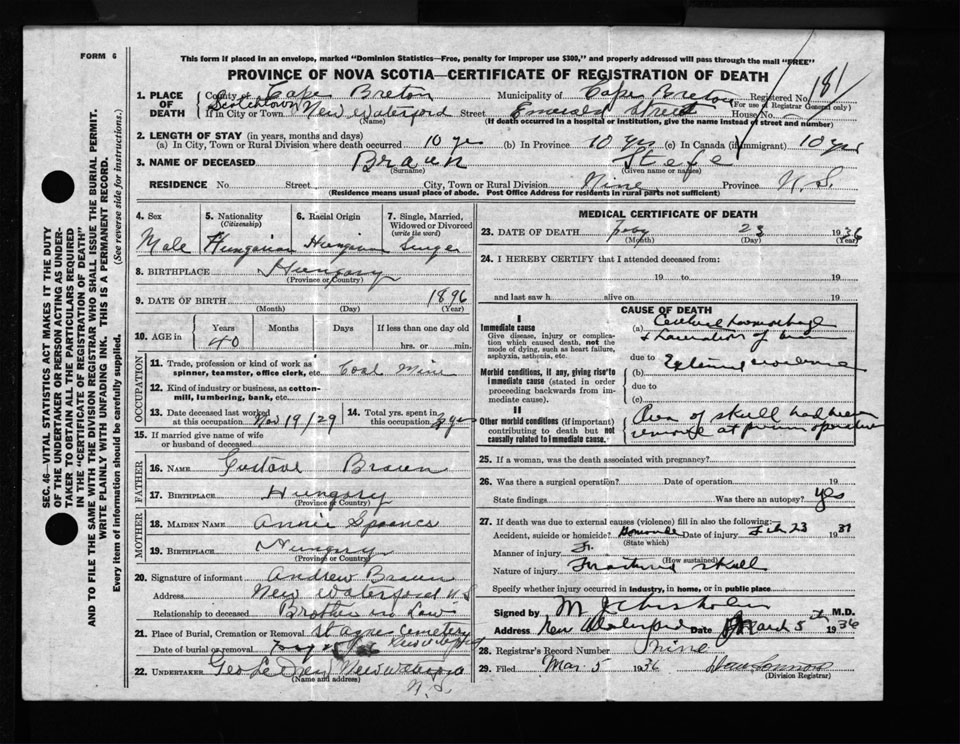 FORM 6
This form if placed in an envelope, marked "Dominion Statistics—Free, penalty for improper use $300," and properly addressed will pass through the mail "FREE"
PROVINCE OF NOVA SCOTIA—CERTIFICATE OF REGISTRATION OF DEATH
SEC. 46—VITAL STATISTICS ACT MAKES IT THE DUTY
OF THE UNDERTAKER OR PERSON ACTING AS UNDER-
TAKER TO OBTAIN ALL THE PARTICULARS REQUIRED
IN THE "CERTIFICATE OF REGISTRATION OF DEATH"
AND TO FILE THE SAME WITH THE DIVISION REGISTRAR WHO SHALL ISSUE THE BURIAL PERMIT.
WRITE PLAINLY WITH UNFADING INK. THIS IS A PERMANENT RECORD.
Every item of information should be carefully supplied. (See reverse side for instructions.)
1. PLACE OF DEATH County of Cape Breton Municipality of Cape Breton Registered No. 181
(For use of Registrar General only)
Scotchtown If in City or Town New Waterford Street Emerald Street House No.
(Name) (If death occurred in a hospital or institution, give the name instead of street and number)
2. LENGTH OF STAY (in years, months and days)
(a) In City, Town or Rural Division where death occurred 10 yrs (b) In Province 10 yrs (c) In Canada (if immigrant) 10 yrs
3. NAME OF DECEASED Braun Stefe
(Surname) (Given name or names)
RESIDENCE No. Street City, Town or Rural Division Nine Province N.S.
(Residence means usual place of abode. Post Office Address for residents in rural parts not sufficient)
4. Sex 5. Nationality (Citizenship) 6. Racial Origin 7. Single, Married, Widowed or Divorced (write the word)
Male Hungarian Hungarian Singer
8. BIRTHPLACE Hungary
(Province or Country)
9. DATE OF BIRTH 1896
(Month) (Day) (Year)
10. AGE in Years Months Days If less than one day
40 hrs. or min.
OCCUPATION
11. Trade, profession or kind of work as spinner, teamster, office clerk, etc. Coal Mine
12. Kind of industry or business, as cotton-mill, lumbering, bank, etc.
13. Date deceased last worked at this occupation Nov 19/29 14. Total yrs. spent in this occupation 3 yrs
15. If married give name of wife or husband of deceased
FATHER
16. NAME Gustave Braun
17. BIRTHPLACE Hungary
(Province or Country)
MOTHER
18. MAIDEN NAME Annie
19. BIRTHPLACE Hungary
(Province or Country)
20. Signature of informant Andrew Braun
Address New Waterford N.S
Relationship to deceased Brother in Law
21. Place of Burial, Cremation or Removal Cemetery
Date of burial or removal
22. UNDERTAKER Geo
(Name and address)
N.S.
MEDICAL CERTIFICATE OF DEATH
23. DATE OF DEATH Feby 23 1936
(Month) (Day) (Year)
24. I HEREBY CERTIFY that I attended deceased from:
19 to 19
and last saw h alive on 19
CAUSE OF DEATH
I
Immediate cause
Give disease, injury or complication which caused death, not the mode of dying, such as heart failure, asphyxia, asthenia, etc.
(a) Cerebral haemorrhage
& laceration of brain
due to
Morbid conditions, if any, giving rise to immediate cause (stated in order proceeding backwards from immediate cause).
(b) External violence
due to
(c)
II
Other morbid conditions (if important) contributing to death but not causally related to immediate cause.
Area of skull had been
remove at operation
25. If a woman, was the death associated with pregnancy?
26. Was there a surgical operation? Date of operation 19
State findings Was there an autopsy? yes
27. If death was due to external causes (violence) fill in also the following:
Accident, suicide or homicide? Date of injury Feb 23 19
(State which)
Manner of injury Fr.
(How sustained)
Nature of injury Fractured skull
Specify whether injury occurred in industry, in home, or in public place
Signed by M J Chisholm M.D.
Address New Waterford Date March 5th 1936
28. Registrar's Record Number nine
29. Filed Mar 5 1936
(Division Registrar)